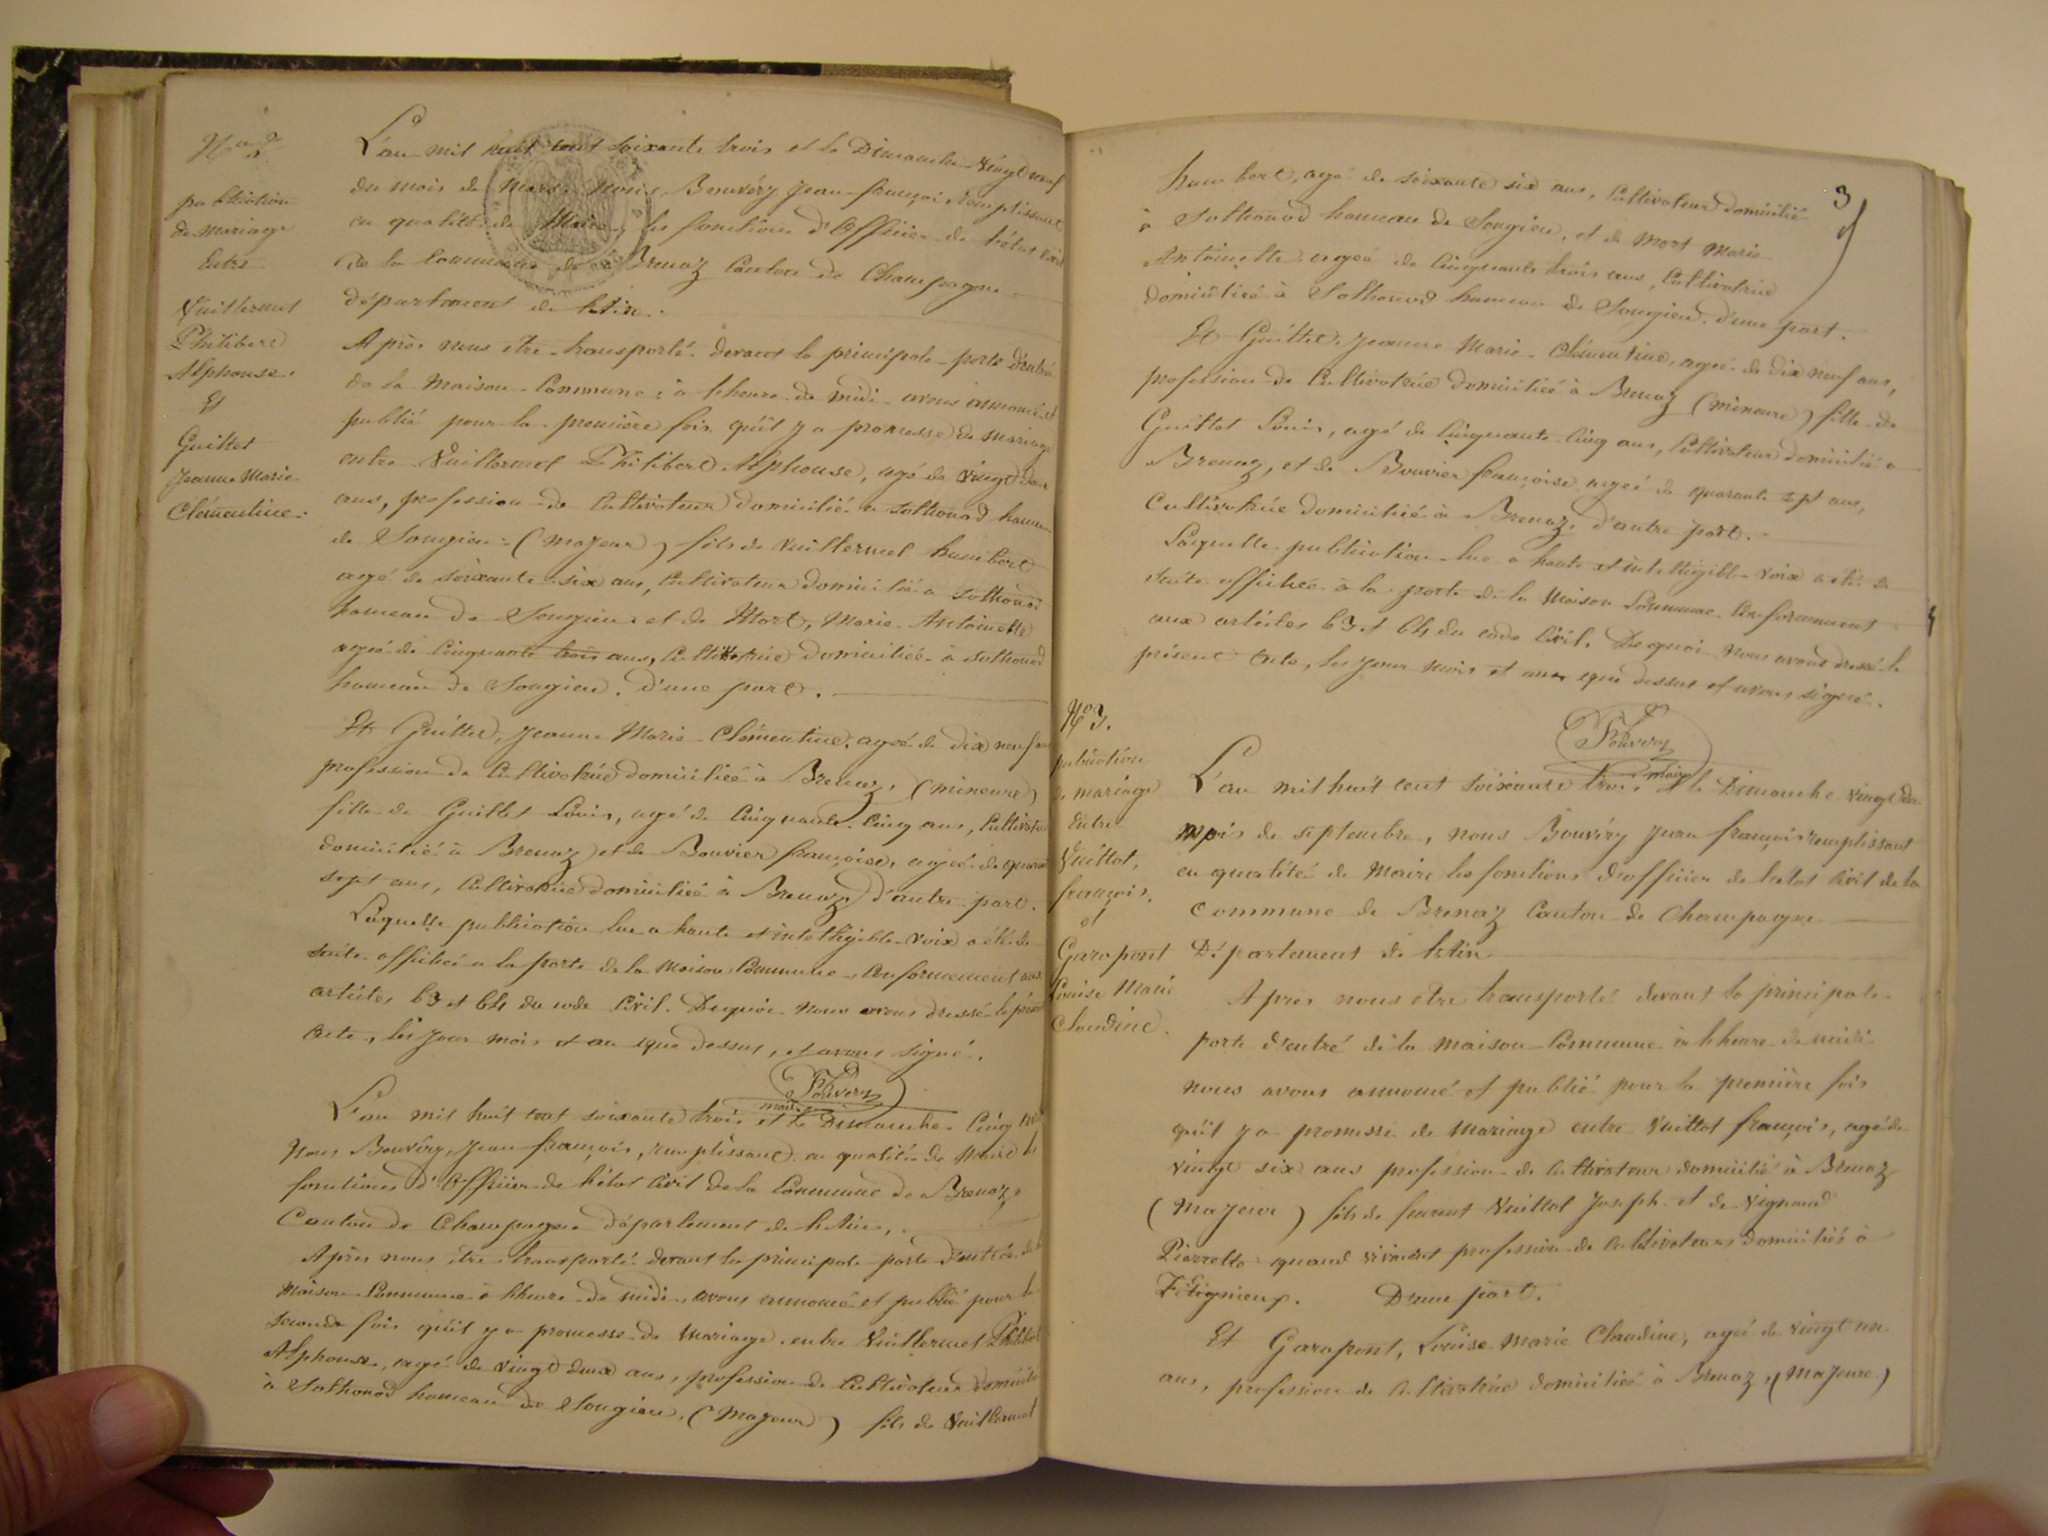 No 2
publication
de mariage
Entre
Vuillermet
Philibert
Alphonse.
Et
Guillet
Jeanne Marie
Clémentine.
L'an mil huit cent soixante trois et le Dimanche vingt neuf
du mois de Mars Nous Bouvéry Jean françois remplissant
en qualité de Maire, les fonctions d'Officier de l'état Civil
de la Commune de Brenaz Canton de Champagne
département de l'Ain.
Après nous etre transporté devant la principale porte d'entrée
de la Maison Commune; à l'heure de midi avons annoncé et
publié pour la première fois qu'il y a promesse de mariage
entre Vuillermet Philibert Alphonse, agé de vingt deux
ans, profession de Cultivateur domicilié à Sothonod hameau
de Songieu (Majeur) fils de Vuillermet humbert
agé de soixante six ans, Cultivateur domicilié à Sothonod
hameau de Songieu et de Mort, Marie Antoinette
agée de Cinquante trois ans, Cultivatrice domiciliée à Sothonod
hameau de Songieu. d'une part.
Et Guillet, Jeanne Marie Clémentine, agée de dix neuf ans
profession de Cultivatrice domiciliée à Brenaz, (mineure)
fille de Guillet Louis, agé de Cinquante Cinq ans, Cultivateur
domicilié à Brenaz et de Bouvier françoise, agée de quarante
sept ans, Cultivatrice domiciliée à Brenaz d'autre part.
Laquelle publication lue a haute et intelligible voix a été de
suite affichée a la porte de la Maison Commune Conformement aux
articles 63 et 64 du code Civil. De quoi nous avons dressé le présent
acte, les jour mois et an que dessus, et avons signé.
Bouvery
maire
L'an mil huit cent soixante trois et le Dimanche Cinq
Nous Bouvéry, Jean françois, remplissant en qualité de Maire les
fonctions d'Officier de l'état Civil de la Commune de Brenaz
Canton de Champagne département de l'Ain,
Après nous être transporté devant la principale porte d'entrée de la
Maison Commune à l'heure de midi, avons annoncé et publié pour la
seconde fois qu'il y a promesse de Mariage entre Vuillermet Philibert
Alphonse, agé de vingt deux ans, profession de Cultivateur domicilié
à Sothonod hameau de Songieu, (Majeur) fils de Vuillermet
3
humbert, agé de soixante six ans, Cultivateur domicilié
à Sothonod hameau de Songieu, et de Mort Marie
Antoinette agée de Cinquante trois ans, Cultivatrice
domiciliée à Sothonod hameau de Songieu. d'une part.
Et Guillet, Jeanne Marie Clémentine, agée de dix neuf ans,
profession de Cultivatrice domiciliée à Brenaz (mineure) fille de
Guillet Louis, agé de Cinquante Cinq ans, Cultivateur domicilié à
Brenaz, et de Bouvier françoise agée de quarante sept ans,
Cultivatrice domiciliée à Brenaz, d'autre part.
Laquelle publication lue a haute et intelligible voix a été de
suite affichée à la porte de la Maison Commune Conformement
aux articles 63 et 64 du code Civil. De quoi nous avons dressé le
présent acte, les jour mois et an que dessus et avons signé.
Bouvery
maire
No 3.
publication
de mariage
Entre
Vuillot,
françois.
et
Garapont
Louise Marie
Claudine.
L'an mil huit cent soixante trois et le Dimanche vingt du
mois de septembre, nous Bouvéry Jean françois remplissant
en qualité de Maire les fonctions d'officier de l'état Civil de la
Commune de Brenaz Canton de Champagne
Département de l'Ain
Après nous etre transporté devant la principale
porte d'entrée de la Maison Commune à l'heure de midi
nous avons annoncé et publié pour la première fois
qu'il y a promesse de Mariage entre Vuillot françois, agé de
vingt six ans profession de Cultivateur domicilié à Brenaz
(Majeur) fils de feurent Vuillot Joseph et de Vignand
Pierrette quand vivaient profession de Cultivateurs domiciliés à
Fitignieux. D'une part.
Et Garapont, Louise Marie Claudine, agée de vingt un
ans, profession de Cultivatrice domiciliée à Brenaz, (Majeure)